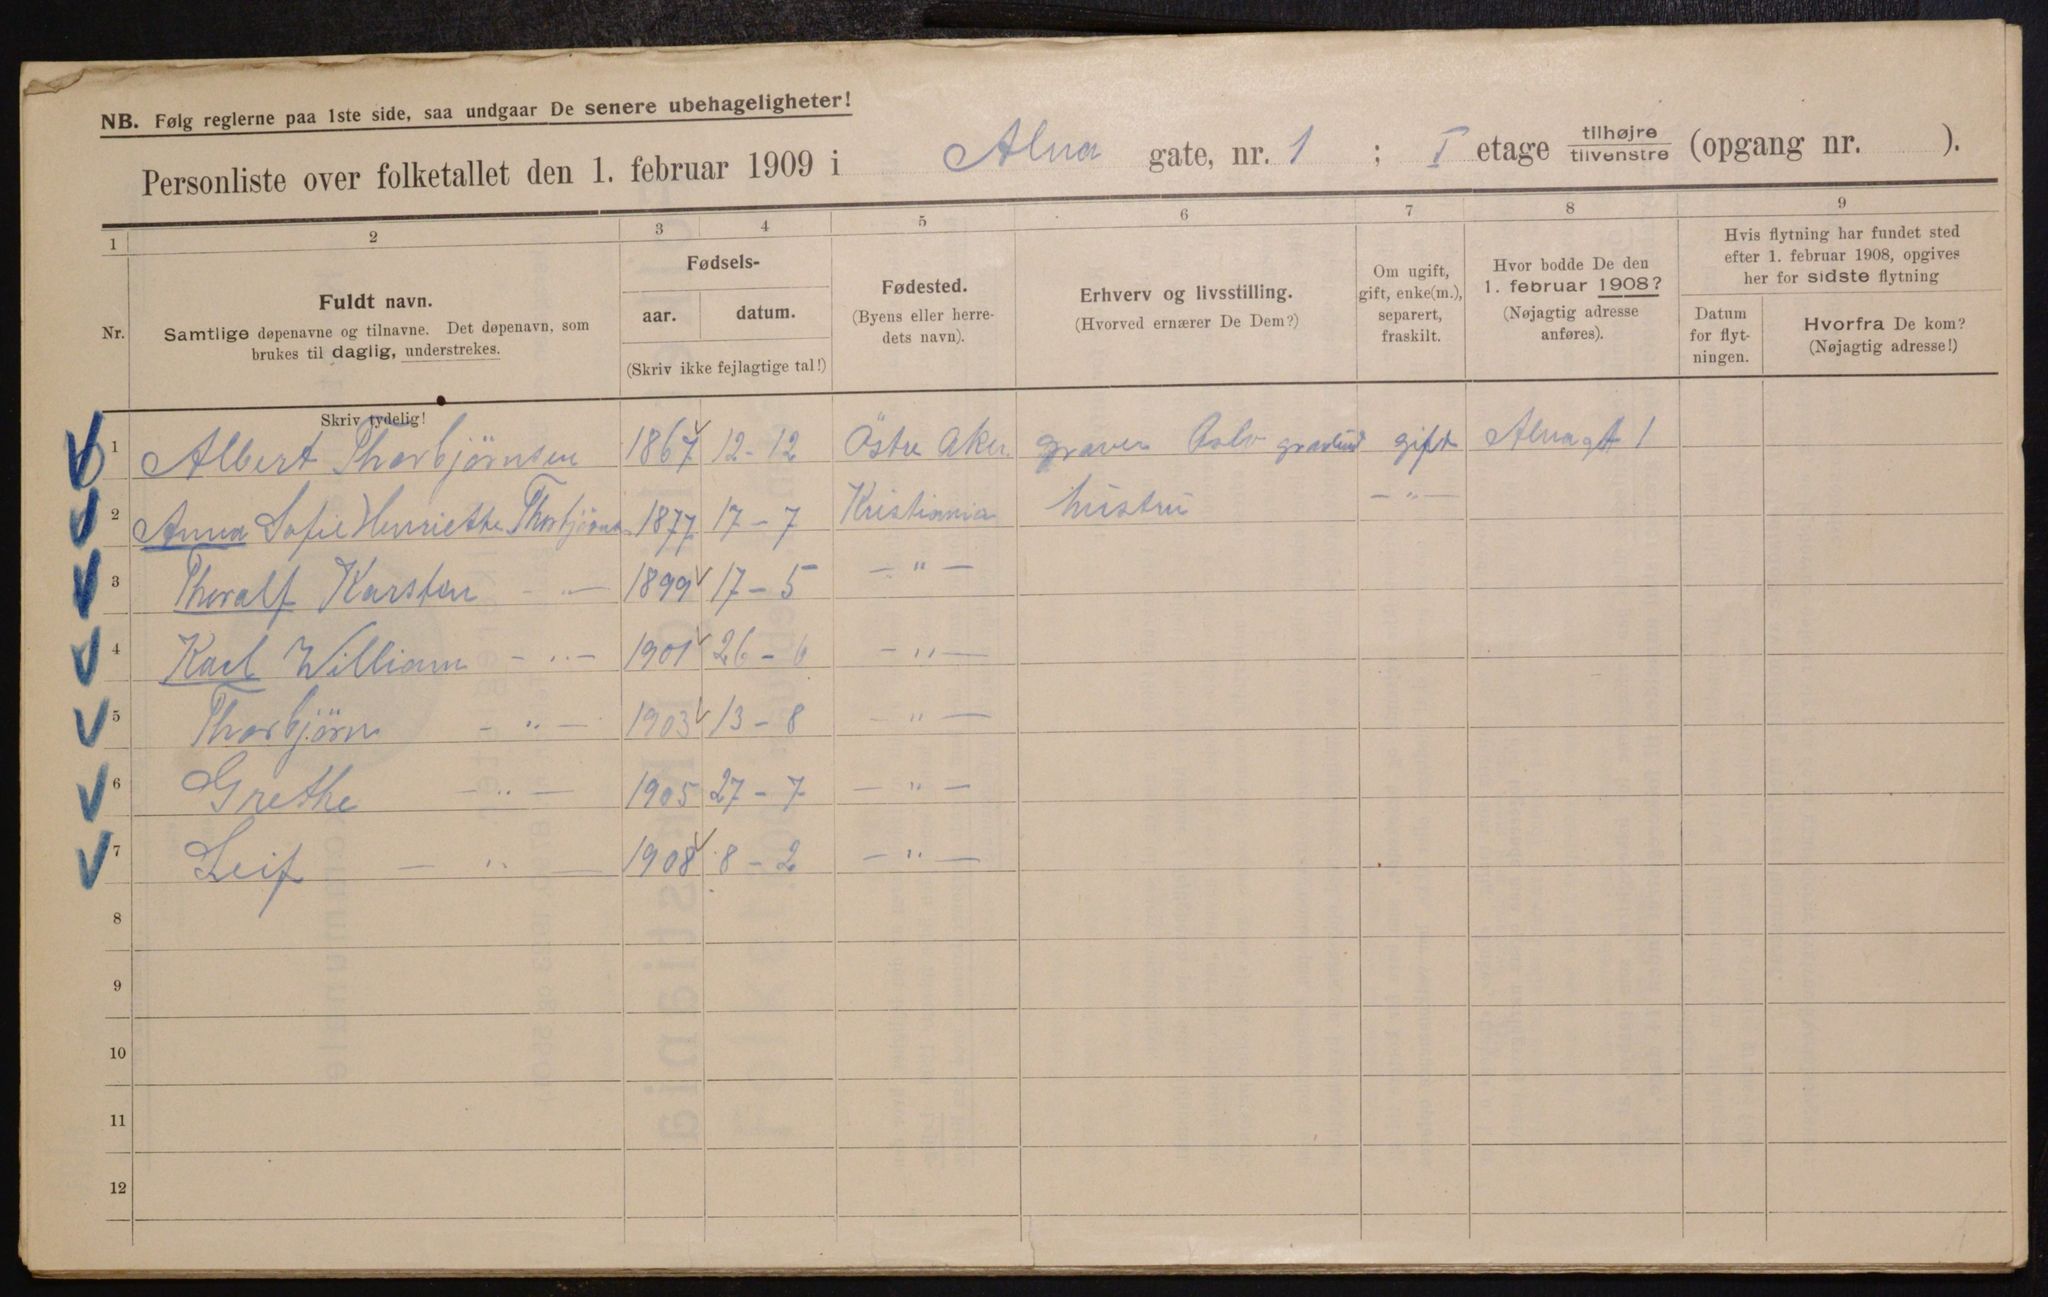 NB. Følg reglerne paa 1ste side, saa undgaar De senere ubehageligheter!
Personliste over folketallet den 1. februar 1909 i Alna gate, nr. 1 ; I etage tilhøjre / tilvenstre (opgang nr. ).
1 2 3 4 5 6 7 8 9
Nr.
Fuldt navn.
Samtlige døpenavne og tilnavne. Det døpenavn, som
brukes til daglig, understrekes.
Skriv tydelig!
Fødsels-
aar. datum.
(Skriv ikke fejlagtige tal!)
Fødested.
(Byens eller herre-
dets navn).
Erhverv og livsstilling.
(Hvorved ernærer De Dem?)
Om ugift,
gift, enke(m.),
separert,
fraskilt.
Hvor bodde De den
1. februar 1908?
(Nøjagtig adresse
anføres).
Hvis flytning har fundet sted
efter 1. februar 1908, opgives
her for sidste flytning
Datum
for flyt-
ningen.
Hvorfra De kom?
(Nøjagtig adresse!)
1 Albert Thorbjørnsen 1867 12-12 Östre Aker graver Oslo gravlund gift Alnagt 1
2 Anna Sofie Henriette Thorbjörns 1877 17-7 Kristiania hustru -"-
3 Thoralf Karsten -"- 1899 17-5 -"-
4 Karl William -"- 1901 26-6 -"-
5 Thorbjörn -"- 1903 13-8 -"-
6 Grethe -"- 1905 27-7 -"-
7 Leif -"- 1908 8-2 -"-
8
9
10
11
12